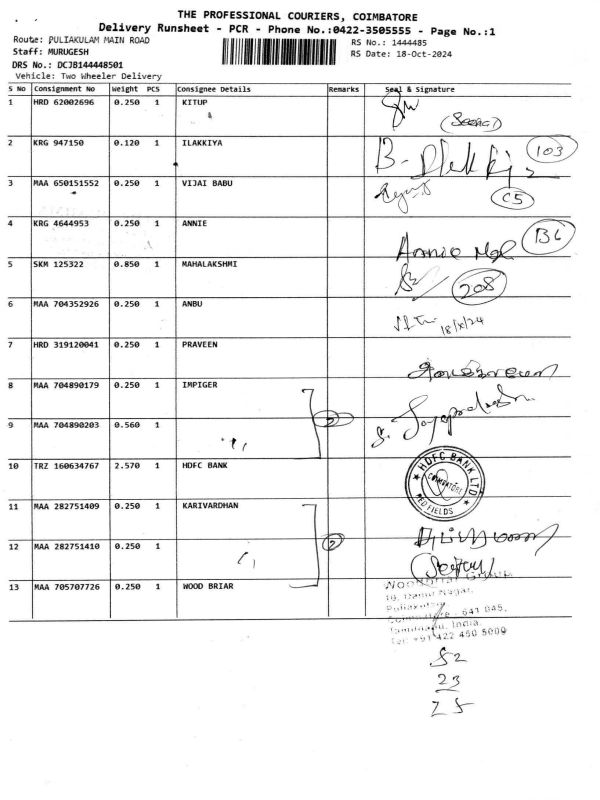 THE PROFESSIONAL COURIERS, COIMBATORE
Delivery Runsheet - PCR - Phone No.:0422-3505555 - Page No.:1
Route: PULIAKULAM MAIN ROAD
RS No.: 1444485
Staff: MURUGESH
RS Date: 18-Oct-2024
DRS No.: DCJB144448501
Vehicle: Two Wheeler Delivery
S No Consignment No Weight PCS Consignee Details Remarks Seal & Signature
1 HRD 62002696 0.250 1 KITUP
2 KRG 947150 0.120 1 ILAKKIYA 103
3 MAA 650151552 0.250 1 VIJAI BABU C5
4 KRG 4644953 0.250 1 ANNIE Annie B6
5 SKM 125322 0.850 1 MAHALAKSHMI 208
6 MAA 704352926 0.250 1 ANBU 18/x/24
7 HRD 319120041 0.250 1 PRAVEEN
8 MAA 704890179 0.250 1 IMPIGER
9 MAA 704890203 0.560 1 2
10 TRZ 160634767 2.570 1 HDFC BANK HDFC BANK LTD COIMBATORE RED FIELDS
11 MAA 282751409 0.250 1 KARIVARDHAN
12 MAA 282751410 0.250 1 2
13 MAA 705707726 0.250 1 WOOD BRIAR
Puliakulam
Coimbatore - 641 045,
Tamilnadu, India.
Tel: +91 422 450 5009
52
23